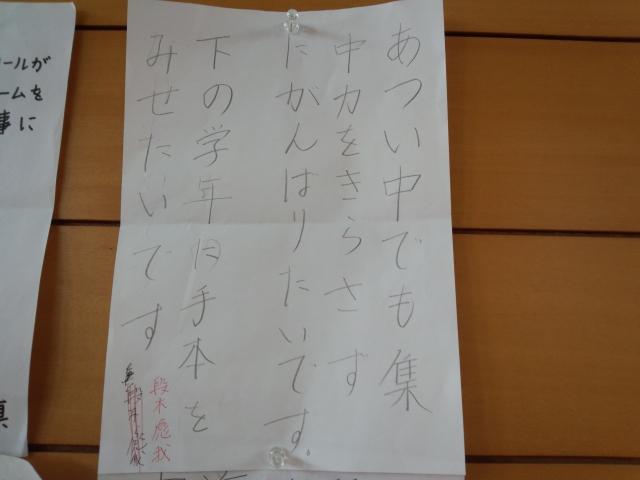 あつい中でも集
中力をきらさず
にがんばりたいです。
下の学年日手本を
みせたいです
ールが
ームを
事に